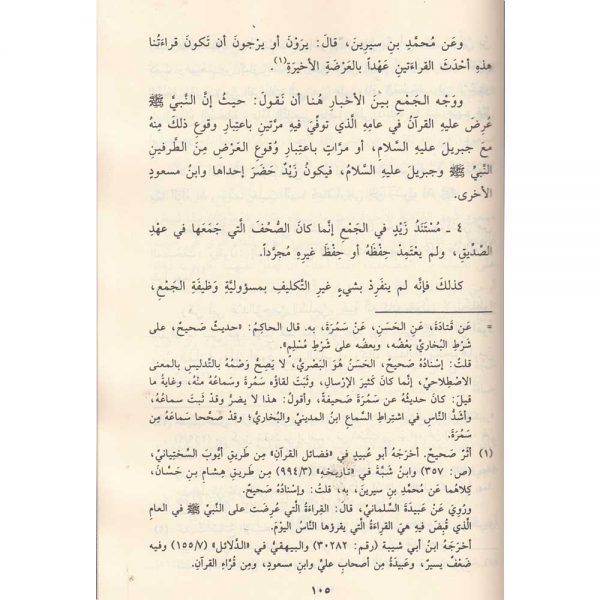 وعَن مُحمَّدِ بنِ سيرينَ، قالَ: يرَوْنَ أو يرْجونَ أن تَكونَ قراءَتُنا
هذهِ أحْدَثَ القراءَتينِ عَهْداً بالعَرْضَةِ الأخيرَةِ(١).
ووَجْه الجَمْعِ بينَ الأخبارِ هُنا أن نَقولَ: حيثُ إنَّ النَّبيَّ ﷺ
عُرِضَ عليهِ القرآنُ في عامِهِ الَّذي توفِّيَ فيهِ مرَّتينِ باعتِبارِ وقوعِ ذلكَ مِنهُ
معَ جبريلَ عليهِ السَّلام، أو مرَّاتٍ باعتِبارِ وُقوعِ العَرْضِ مِنَ الطَّرفينِ
النَّبيِّ ﷺ وجبريلَ عليهِ السَّلامُ، فيكونُ زَيْدٌ حَضَرَ إحداها وابنُ مسعودٍ
الأخرى.
٤ - مُسْتَنَدُ زَيْدٍ في الجَمْعِ إنَّما كانَ الصُّحُفَ الَّتي جَمَعَها في عهْدِ
الصِّدِّيقِ، ولم يعْتَمِدْ حِفْظَهُ أو حِفْظَ غيرِهِ مُجرَّداً.
كذلكَ فإنَّه لم ينفَرِدْ بشيءٍ غيرِ التَّكليفِ بمسؤوليَّةِ وَظيفَةِ الجَمْعِ،
= عَن قَتادَةَ، عَنِ الحَسَنِ، عَنْ سَمُرَةَ، به. قال الحاكِمُ: «حديثٌ صَحيحٌ، على
شَرْطِ البُخاريِّ بعْضُه، وبعضُه على شَرْطِ مُسْلِمٍ».
قلتُ: إسْنادُهُ صَحيحٌ، الحَسَنُ هُوَ البَصْرِيُّ، لا يَصِحُّ وَصْمُهُ بالتَّدليسِ بالمعنى
الاصْطِلاحيِّ، إنَّما كانَ كَثيرَ الإرْسالِ، وثَبَتَ لقاؤه سَمُرَةَ وسَماعُهُ منْهُ، وغايَةُ ما
قيلَ: كانَ حديثُه عن سَمُرَةَ صَحيفةً، وأقولُ: هذا لا يضرُّ وقدْ ثَبَتَ سَماعُهُ،
وأشَدُّ النَّاسِ في اشتِراطِ السَّماعِ ابنُ المدينيِّ والبُخاريُّ؛ وقدْ صحَّحا سَماعَهُ مِن
سَمُرَةَ.
(١) أثَرٌ صَحيحٌ. أخرَجَهُ أبو عُبيدٍ في «فضائل القرآنِ» مِن طَريقِ أيُّوبَ السَّختِيانيِّ،
(ص: ٣٥٧) وابنُ شَبَّةَ في «تاريخهِ» (٩٩٤/٣) مِن طَريقِ هِشامِ بنِ حَسَّانَ،
كِلاهُما عَن مُحمَّدِ بنِ سيرينَ، به، قلتُ: وإسْنادُهُ صَحيحٌ.
ورُوِيَ عَنْ عَبيدَةَ السَّلْمانيِّ، قالَ: القِراءَةُ الَّتي عُرِضَت على النَّبيِّ ﷺ في العامِ
الَّذي قُبِضَ فيهِ هيَ القِراءَةُ الَّتي يقرؤها النَّاسُ اليومَ.
أخرَجَهُ ابنُ أبي شيبة (رقم: ٣٠٢٨٢) والبيهقيُّ في «الدَّلائل» (١٥٥/٧) وفيه
ضَعْفٌ يسيرٌ، وعَبيدَةُ مِن أصحابِ عليٍّ وابنِ مسعودٍ، ومِن قُرَّاءِ القرآنِ.
١٠٥